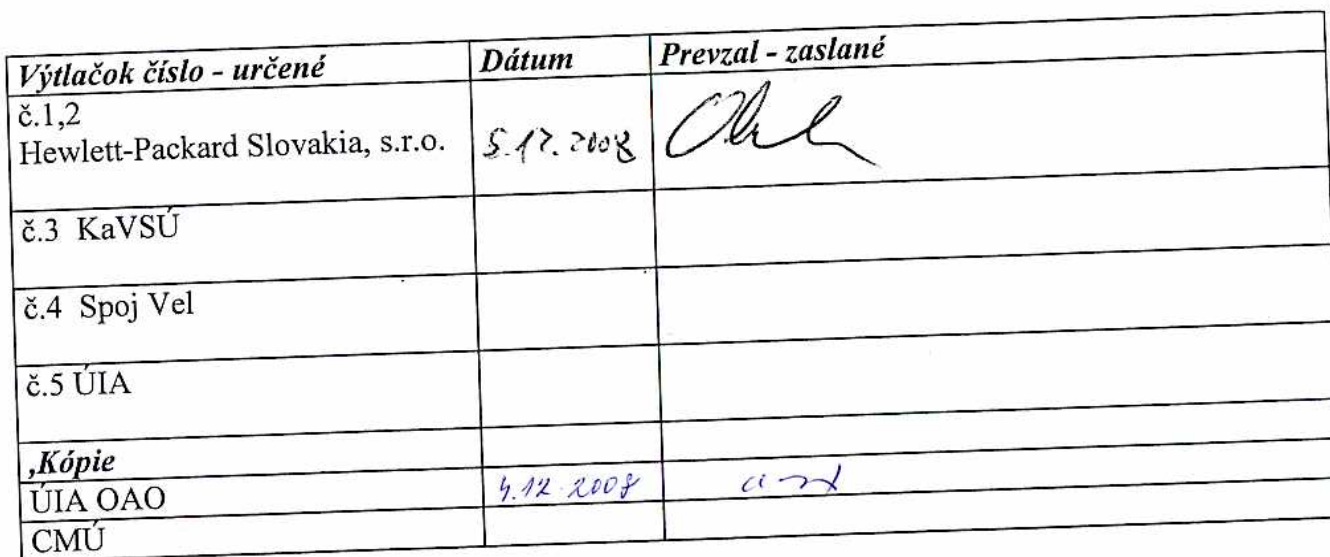 Výtlačok číslo - určené Dátum Prevzal - zaslané
č.1,2
Hewlett-Packard Slovakia, s.r.o. 5.12.2008
č.3 KaVSÚ
č.4 Spoj Vel
č.5 ÚIA
,Kópie
ÚIA OAO 4.12.2008
CMÚ